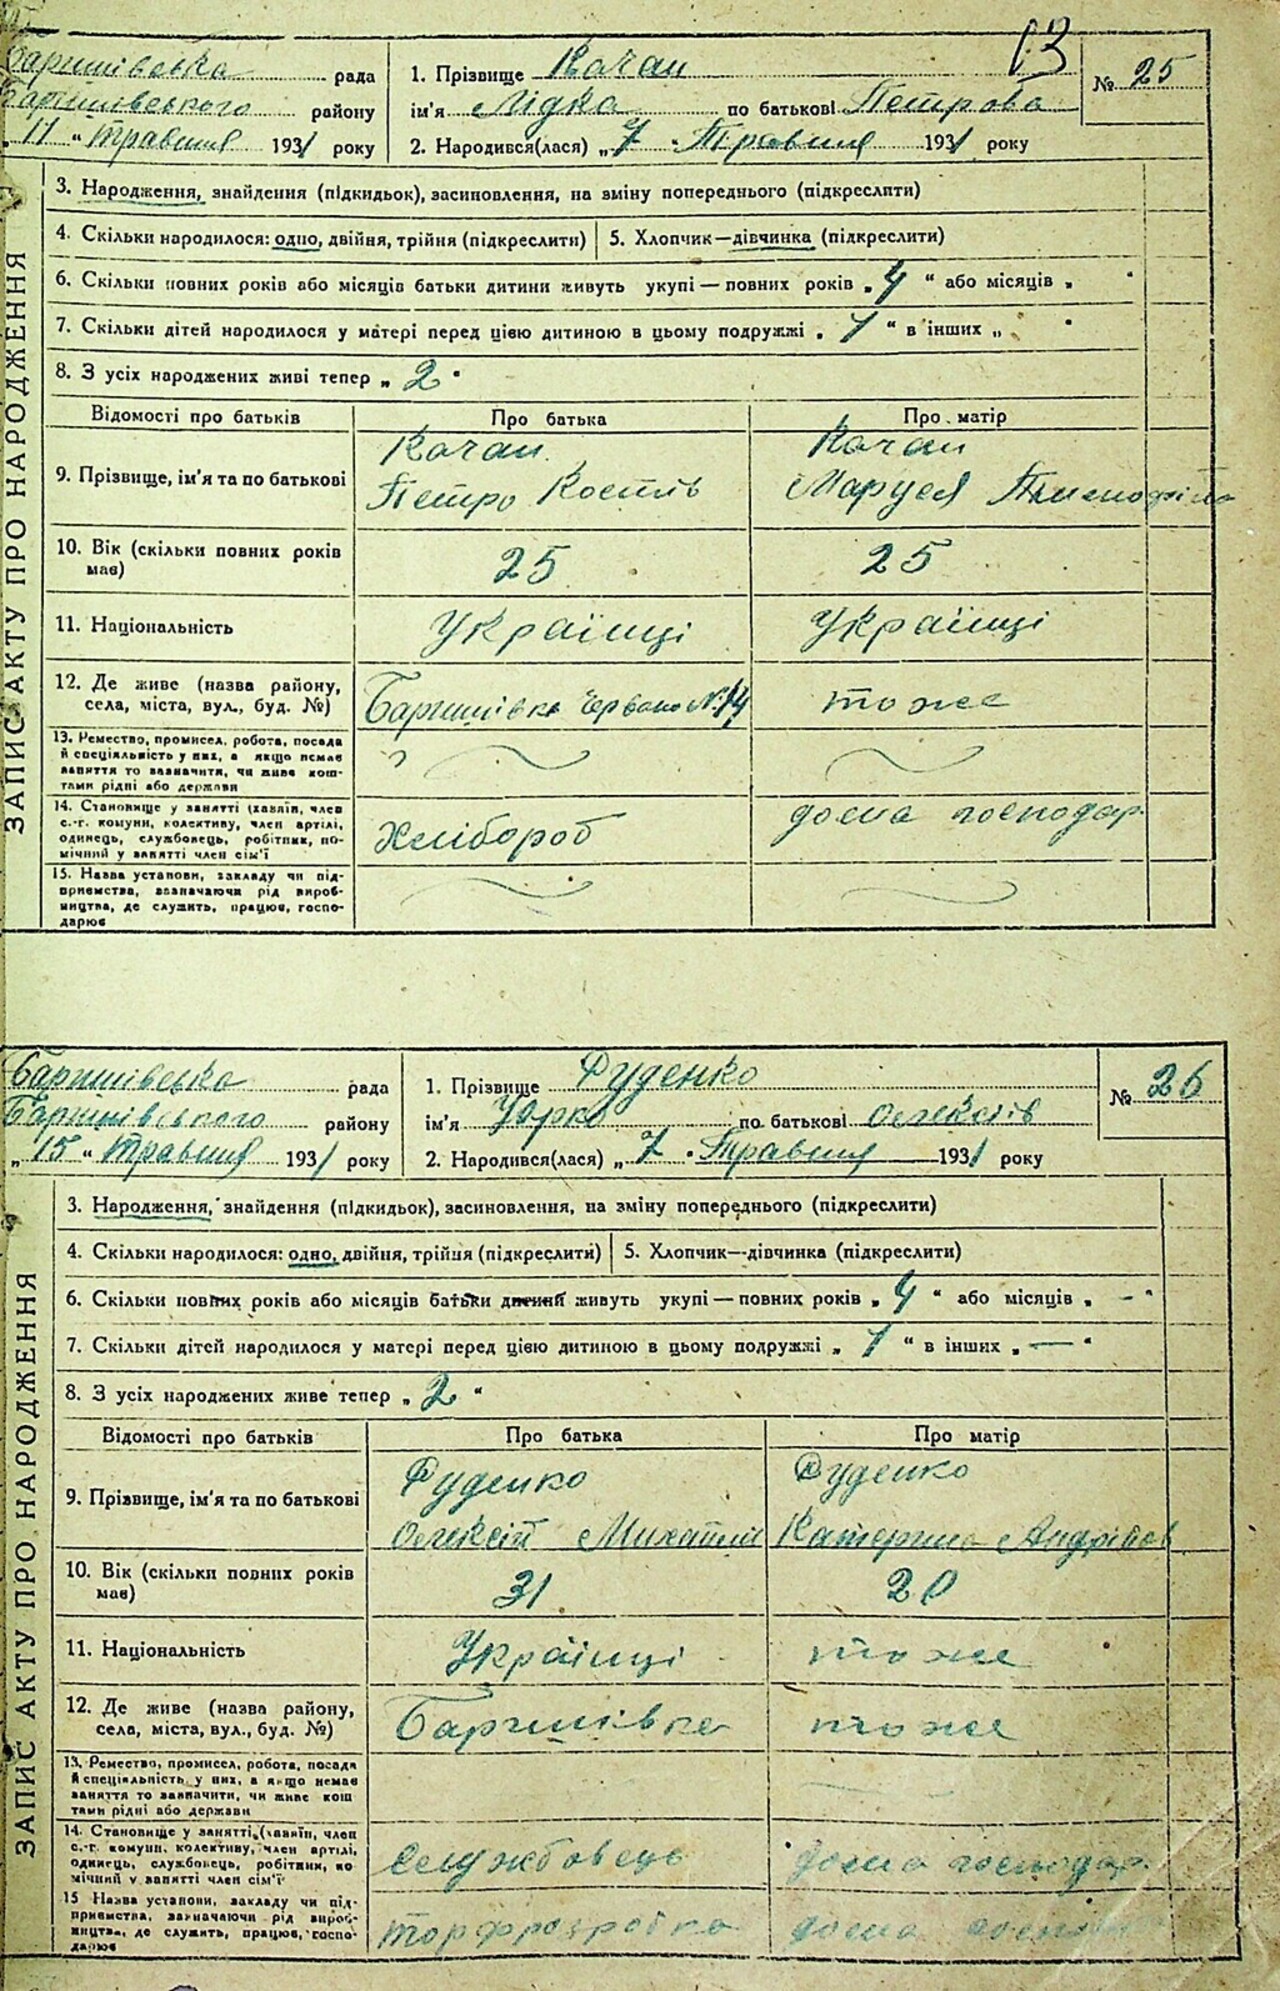 13
Баришівська рада
Баришівського району
„11“ травня 1931 року
1. Прізвище Качан
ім'я Лідка по батькові Петрова
2. Народився(лася) „7“ Травня 1931 року
№ 25
ЗАПИС АКТУ ПРО НАРОДЖЕННЯ
3. Народження, знайдення (підкидьок), засиновлення, на зміну попереднього (підкреслити)
4. Скільки народилося: одно, двійня, трійня (підкреслити) 5. Хлопчик—дівчинка (підкреслити)
6. Скільки повних років або місяців батьки дитини живуть укупі — повних років „4“ або місяців „ “
7. Скільки дітей народилося у матері перед цією дитиною в цьому подружжі „1“ в інших „ “
8. З усіх народжених живі тепер „2“
Відомості про батьків Про батька Про матір
9. Прізвище, ім'я та по батькові
Качан Качан
Петро Костів Маруся
10. Вік (скільки повних років
має) 25 25
11. Національність Українці Українці
12. Де живе (назва району,
села, міста, вул., буд. №) Баришівка Червона №14 тоже
13. Ремество, промисел, робота, посада
й спеціяльність у них, а якщо немає
заняття то зазначити, чи живе кош-
тами рідні або держави
14. Становище у занятті (хазяїн, член
с.-г. комуни, колективу, член артілі,
одинець, службовець, робітник, по-
мічний у занятті член сім'ї Хлібороб дома господар.
15. Назва установи, закладу чи під-
приємства, зазначаючи рід вироб-
ництва, де служить, працює, госпо-
дарює
Баришівська рада
Баришівського району
„15“ травня 1931 року
1. Прізвище Руденко
ім'я Юрко по батькові Олексіїв
2. Народився(лася) „7“ Травня 1931 року
№ 26
ЗАПИС АКТУ ПРО НАРОДЖЕННЯ
3. Народження, знайдення (підкидьок), засиновлення, на зміну попереднього (підкреслити)
4. Скільки народилося: одно, двійня, трійня (підкреслити) 5. Хлопчик—дівчинка (підкреслити)
6. Скільки повних років або місяців батьки дитини живуть укупі — повних років „4“ або місяців „-“
7. Скільки дітей народилося у матері перед цією дитиною в цьому подружжі „1“ в інших „—“
8. З усіх народжених живе тепер „2“
Відомості про батьків Про батька Про матір
9. Прізвище, ім'я та по батькові
Руденко Руденко
Олексій Михайлів Катерина Андріїв
10. Вік (скільки повних років
має) 31 20
11. Національність Українці тоже
12. Де живе (назва району,
села, міста, вул., буд. №) Баришівка тоже
13. Ремество, промисел, робота, посада
й спеціяльність у них, а якщо немає
заняття то зазначити, чи живе кош
тами рідні або держави
14. Становище у занятті (хазяїн, член
с.-г. комуни, колективу, член артілі,
одинець, службовець, робітник, по
мічний у занятті член сім'ї Службовець дома господар.
15 Назва установи, закладу чи під-
приємства, зазначаючи рід вироб-
ництва, де служить, працює, госпо-
дарює торфрозробка дома